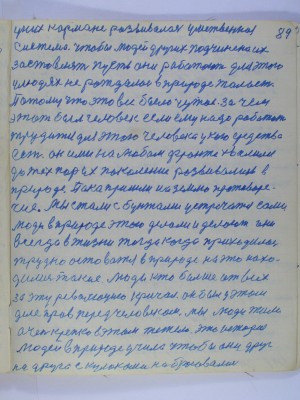 89
у них кормане развивалас умственноя
система. чтобы людей других подчинена их
заставляют пусть они работают для этого
и людях не рождалос в природе
Потому что это все было чужое. За чем
этот был человек если ему надо работат
трудится для этого человека у кого средства
ест. он или на любом фронте
до тех пор их поколения развивалися в
природе. Пока пришли на землю противоре-
чия. Мы стали с бунтами устречатся сами
люди в природе этого делали и делают они
всегда в жизни тогда когда приходилос
трудно оставатся в природе на это нахо-
дилис такие. Люди кто больше от всех
за эту революцию кричал. он был в этом
деле прав перед человеком. мы люди жили
очен крепко в этом теплом. Это история
людей в природе учила чтобы они друг
на друга с кулаками набрасовалис